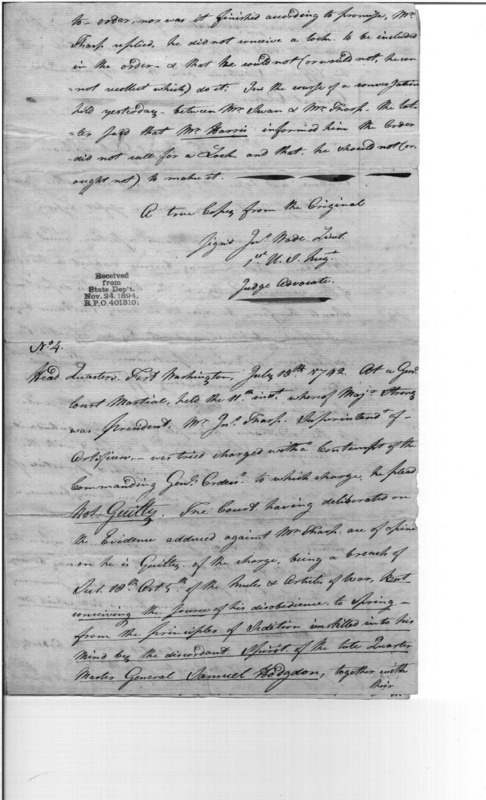 to order, nor was it finished according to promise, Mr.
Tharp replied, he did not conceive a lock to be included
in the order & that he could not (or would not, he can
not recollect which) do it. In the course of a conversation
held yesterday between Mr. Swan & Mr. Tharp the lat-
=ter said that Mr. Harris informed him the Order
did not call for a Lock and that he should not (or
ought not) to make it.
A true Copy from the Original
Sign'd Jno. Wade Lieut.
1st. U. S. Regt.
Judge Advocate.
Received
from
State Dep't.
Nov. 24, 1894,
R.P.O. 401310.
No. 4.
Head Quarters, Fort Washington, July 13th 1792. At a Genl.
Court Martial, held the 11th inst. whereof Majr. Strong
was president, Mr. Jno. Tharp Superintendt. of
Artificers, was tried charged with a Contempt of the
Commanding Genl. Orders to which charge, he plead
Not Guilty. The Court having deliberated on
the Evidence adduced against Mr. Tharp are of opini
on he is Guilty of the charge, being a breach of
Art. 5th of the Rules & Articles of War, but
conceiving the source of his disobedience to Spring
from the principles of Sedition instilled into his
Mind by the discordant Spirit of the late Quarter
Master General Samuel Hodgdon, together with
their